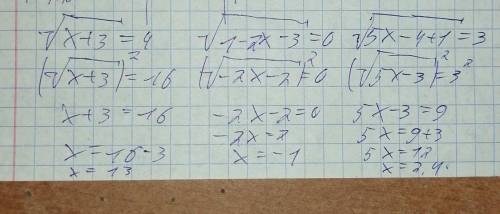 √x+3 = 4
(√x+3)² = 16
x+3 = 16
x = 16-3
x = 13
√1-2x-3 = 0
(√-2x-2)² = 0
-2x-2 = 0
-2x = 2
x = -1
√5x-4+1 = 3
(√5x-3)² = 3²
5x-3 = 9
5x = 9+3
5x = 12
x = 2,4.